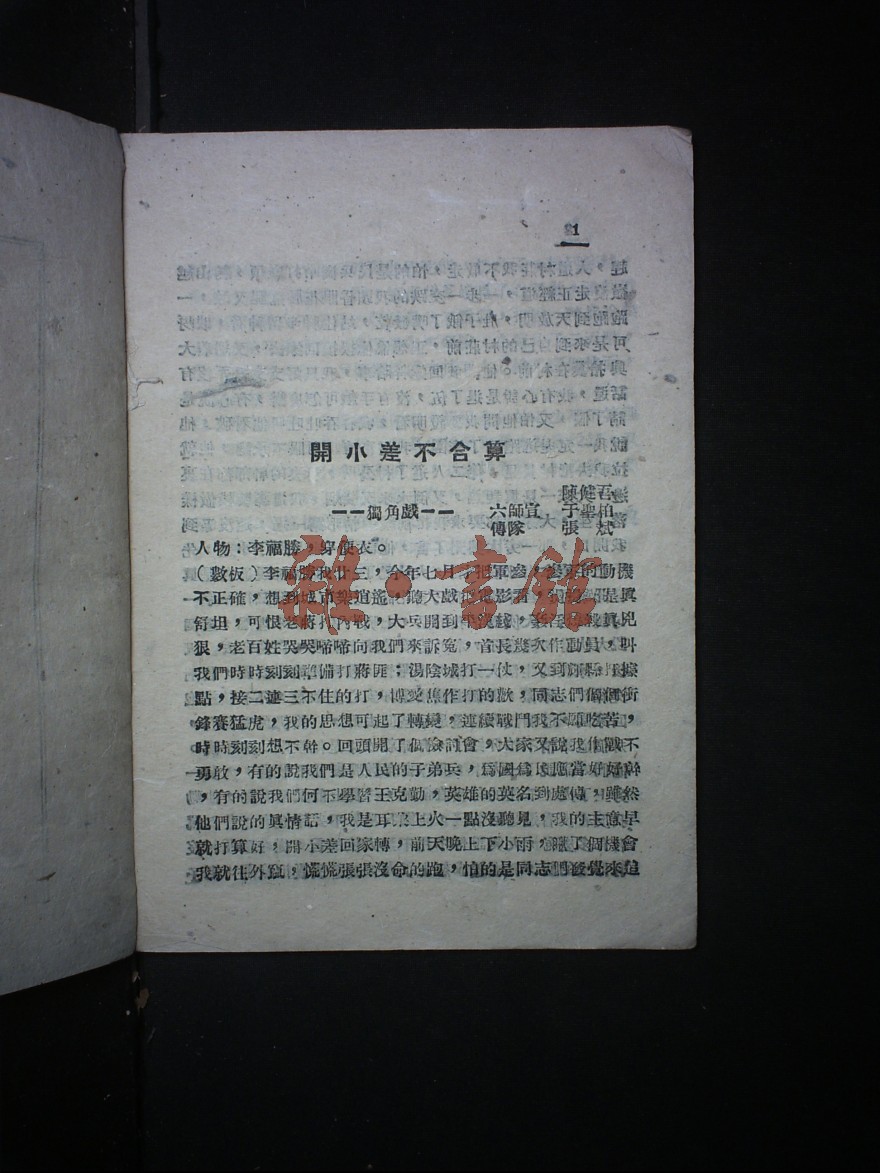 1
開小差不合算
——獨角戲—— 六師宣傳隊 陳健吾 于聖柏 張斌
人物：李福勝，穿便衣。
（數板）李福勝我廿三，今年七月才把軍參，參軍的動機
不正確，想到城市樂逍遙，聽大戲把電影看，是眞
可恨老蔣打內戰，大兵開到
狠，老百姓哭哭啼啼向我們來訴寃，首長幾次作動員，叫
我們時時刻刻準備打蔣匪；湯陰城打一仗，又到
點，接二連三不住的打，博愛焦作打的歡，同志們個個衝
鋒賽猛虎，我的思想可起了轉變，連續戰鬥我不願吃苦，
時時刻刻想不幹。回頭開了個檢討會，大家又說我作戰不
勇敢，有的說我們是人民的子弟兵，爲國爲民應當好好幹
，有的說我們何不學習王克勤，英雄的英名到處傳，雖然
他們說的眞情話，我是耳朶上火一點沒聽見，我的主意早
就打算好，開小差回家轉，前天晚上下小雨，瞅了個機會
我就往外竄，慌慌張張沒命的跑，怕的是同志們發覺來追
雜·書館